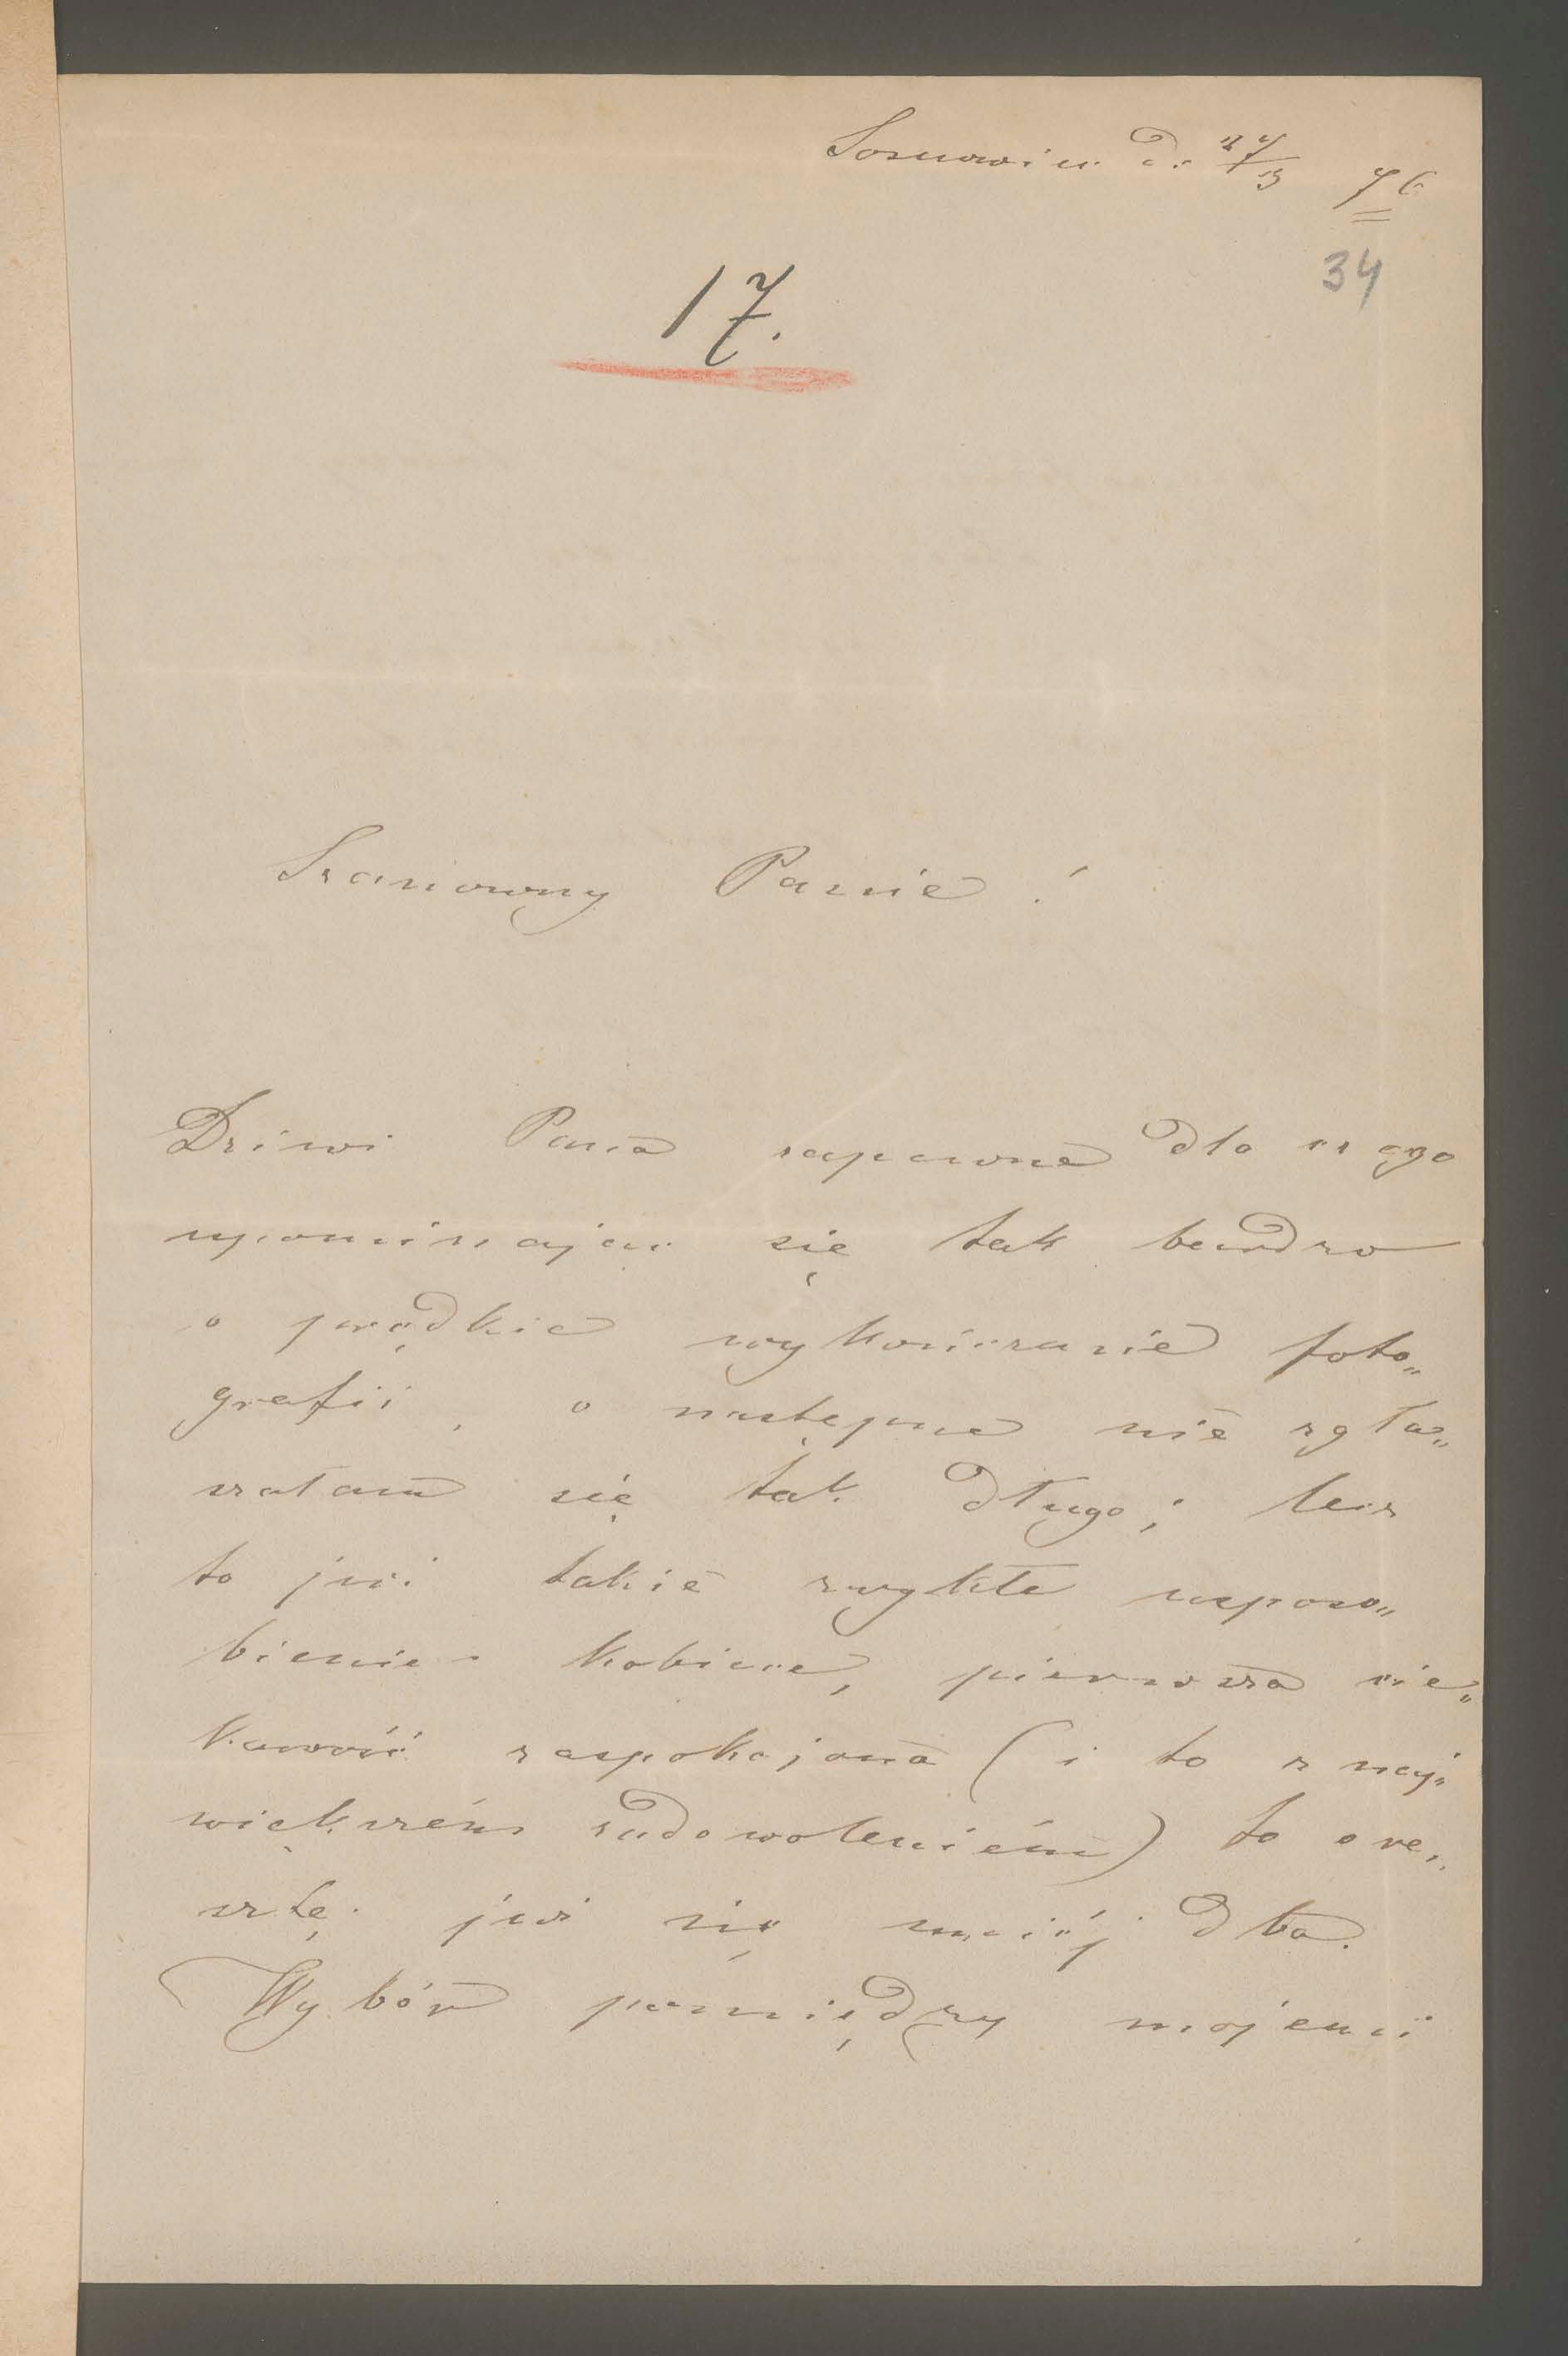 Sosnowice d. 27/3 76
34
17.
Szanowny Panie!
Dziwi Pana zapewne dla czego
upominając się tak bardzo
o prędkie wykończenie foto„
grafii, o następne nie zgła„
szałam się tak długo; lecz
to już takie zwykłe usposo„
bienie kobiece, pierwsza cie„
kawość zaspokojona (i to z naj„
większém zadowoleniém) to o re„
sztę już się mniéj dba.
Wybór pomiędzy mojemi